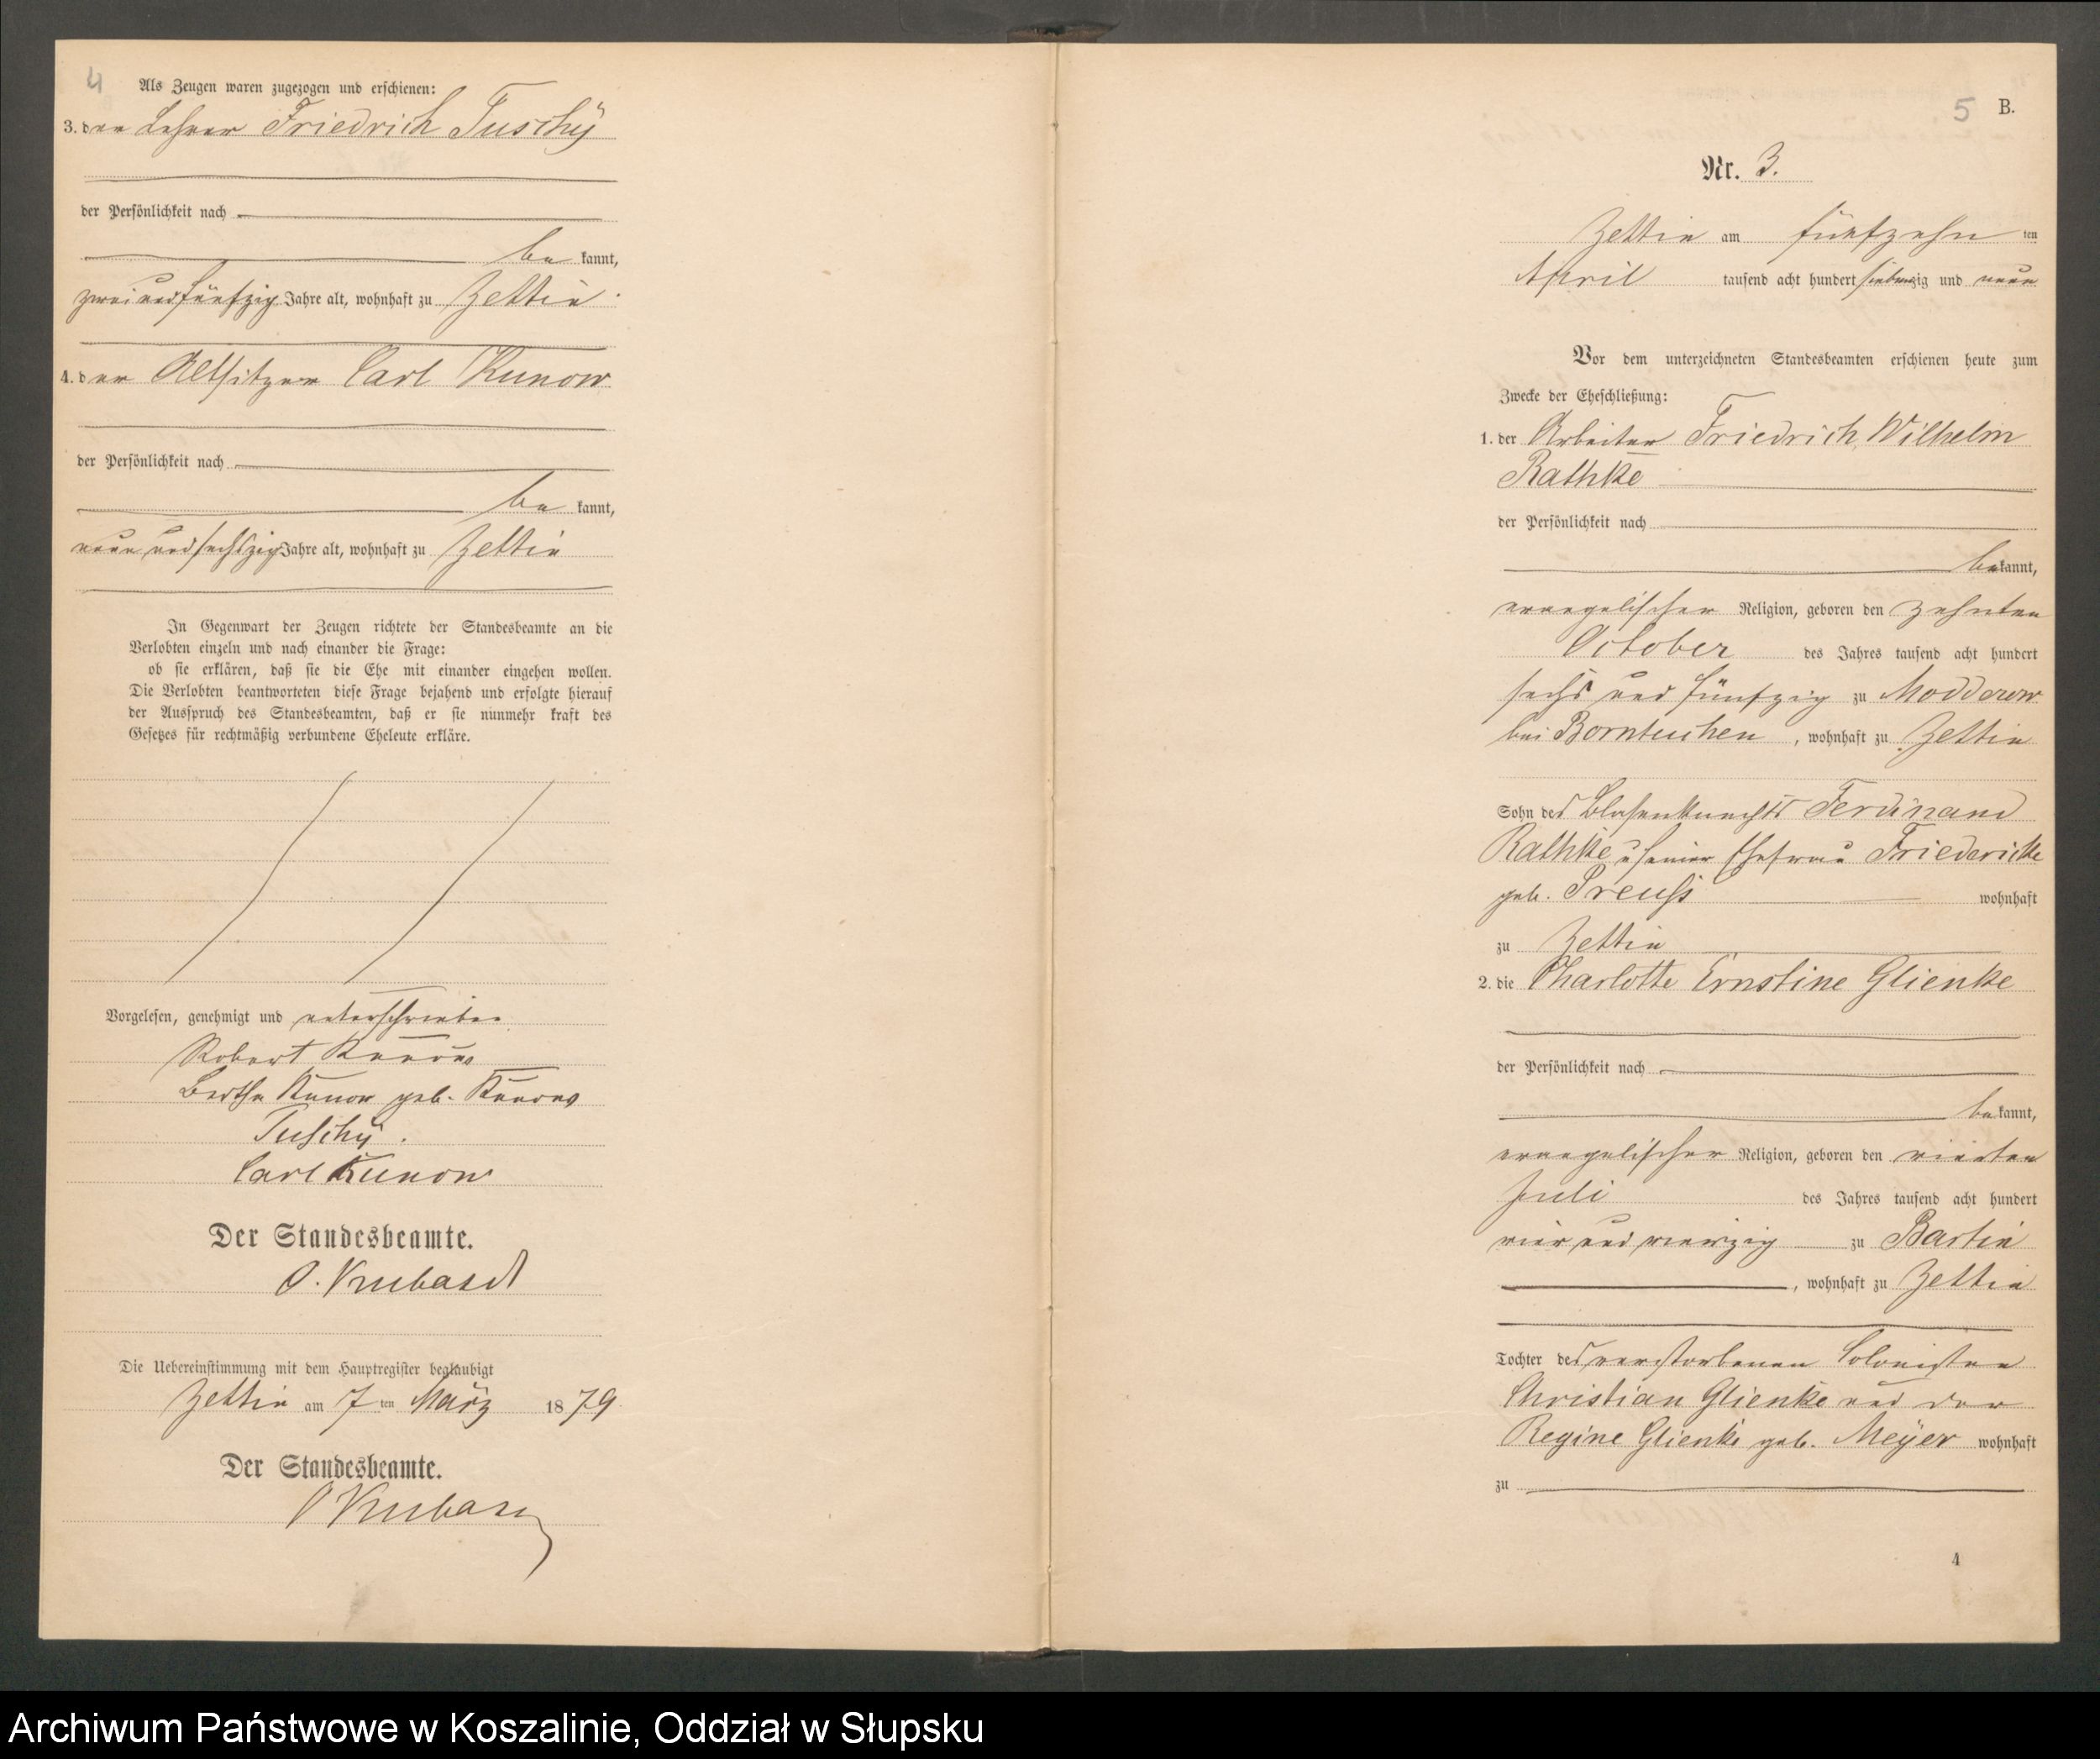 4
Als Zeugen waren zugezogen und erschienen:
3. der Lehrer Friedrich Tuschÿ
der Persönlichkeit nach
be kannt,
zwei und fünfzig Jahre alt, wohnhaft zu Zettin
4. der Altsitzer Carl Kunow
der Persönlichkeit nach
be kannt,
neun und sechszig Jahre alt, wohnhaft zu Zettin
In Gegenwart der Zeugen richtete der Standesbeamte an die
Verlobten einzeln und nach einander die Frage:
ob sie erklären, daß sie die Ehe mit einander eingehen wollen.
Die Verlobten beantworteten diese Frage bejahend und erfolgte hierauf
der Ausspruch des Standesbeamten, daß er sie nunmehr kraft des
Gesetzes für rechtmäßig verbundene Eheleute erkläre.
Vorgelesen, genehmigt und unterschrieben
Robert Kunow
Bertha Kunow geb. Kunow
Tuschÿ.
Carl Kunow
Der Standesbeamte.
O. Krubasd
Die Uebereinstimmung mit dem Hauptregister beglaubigt
Zettin am 7 ten März 1879.
Der Standesbeamte.
5 B.
Nr. 3.
Zettin am fünfzehn ten
April tausend acht hundert siebenzig und neun
Vor dem unterzeichneten Standesbeamten erschienen heute zum
Zwecke der Eheschließung:
1. der Arbeiter Friedrich Wilhelm
Rathke
der Persönlichkeit nach
be kannt,
evangelischer Religion, geboren den zehnten
October des Jahres tausend acht hundert
sechs und fünfzig zu Modderow
bei Borntuchen, wohnhaft zu Zettin
Sohn des Ferdinand
Rathke u seiner Ehefrau Friedericke
geb. Preuß wohnhaft
zu Zettin
2. die Charlotte Ernstine Glienke
der Persönlichkeit nach
be kannt,
evangelischer Religion, geboren den vierten
Juli des Jahres tausend acht hundert
vier und vierzig zu Bartin
, wohnhaft zu Zettin
Tochter des verstorbenen Colonisten
Christian Glienke und der
Regine Glienke geb. Meÿer wohnhaft
zu
4
Archiwum Państwowe w Koszalinie, Oddział w Słupsku